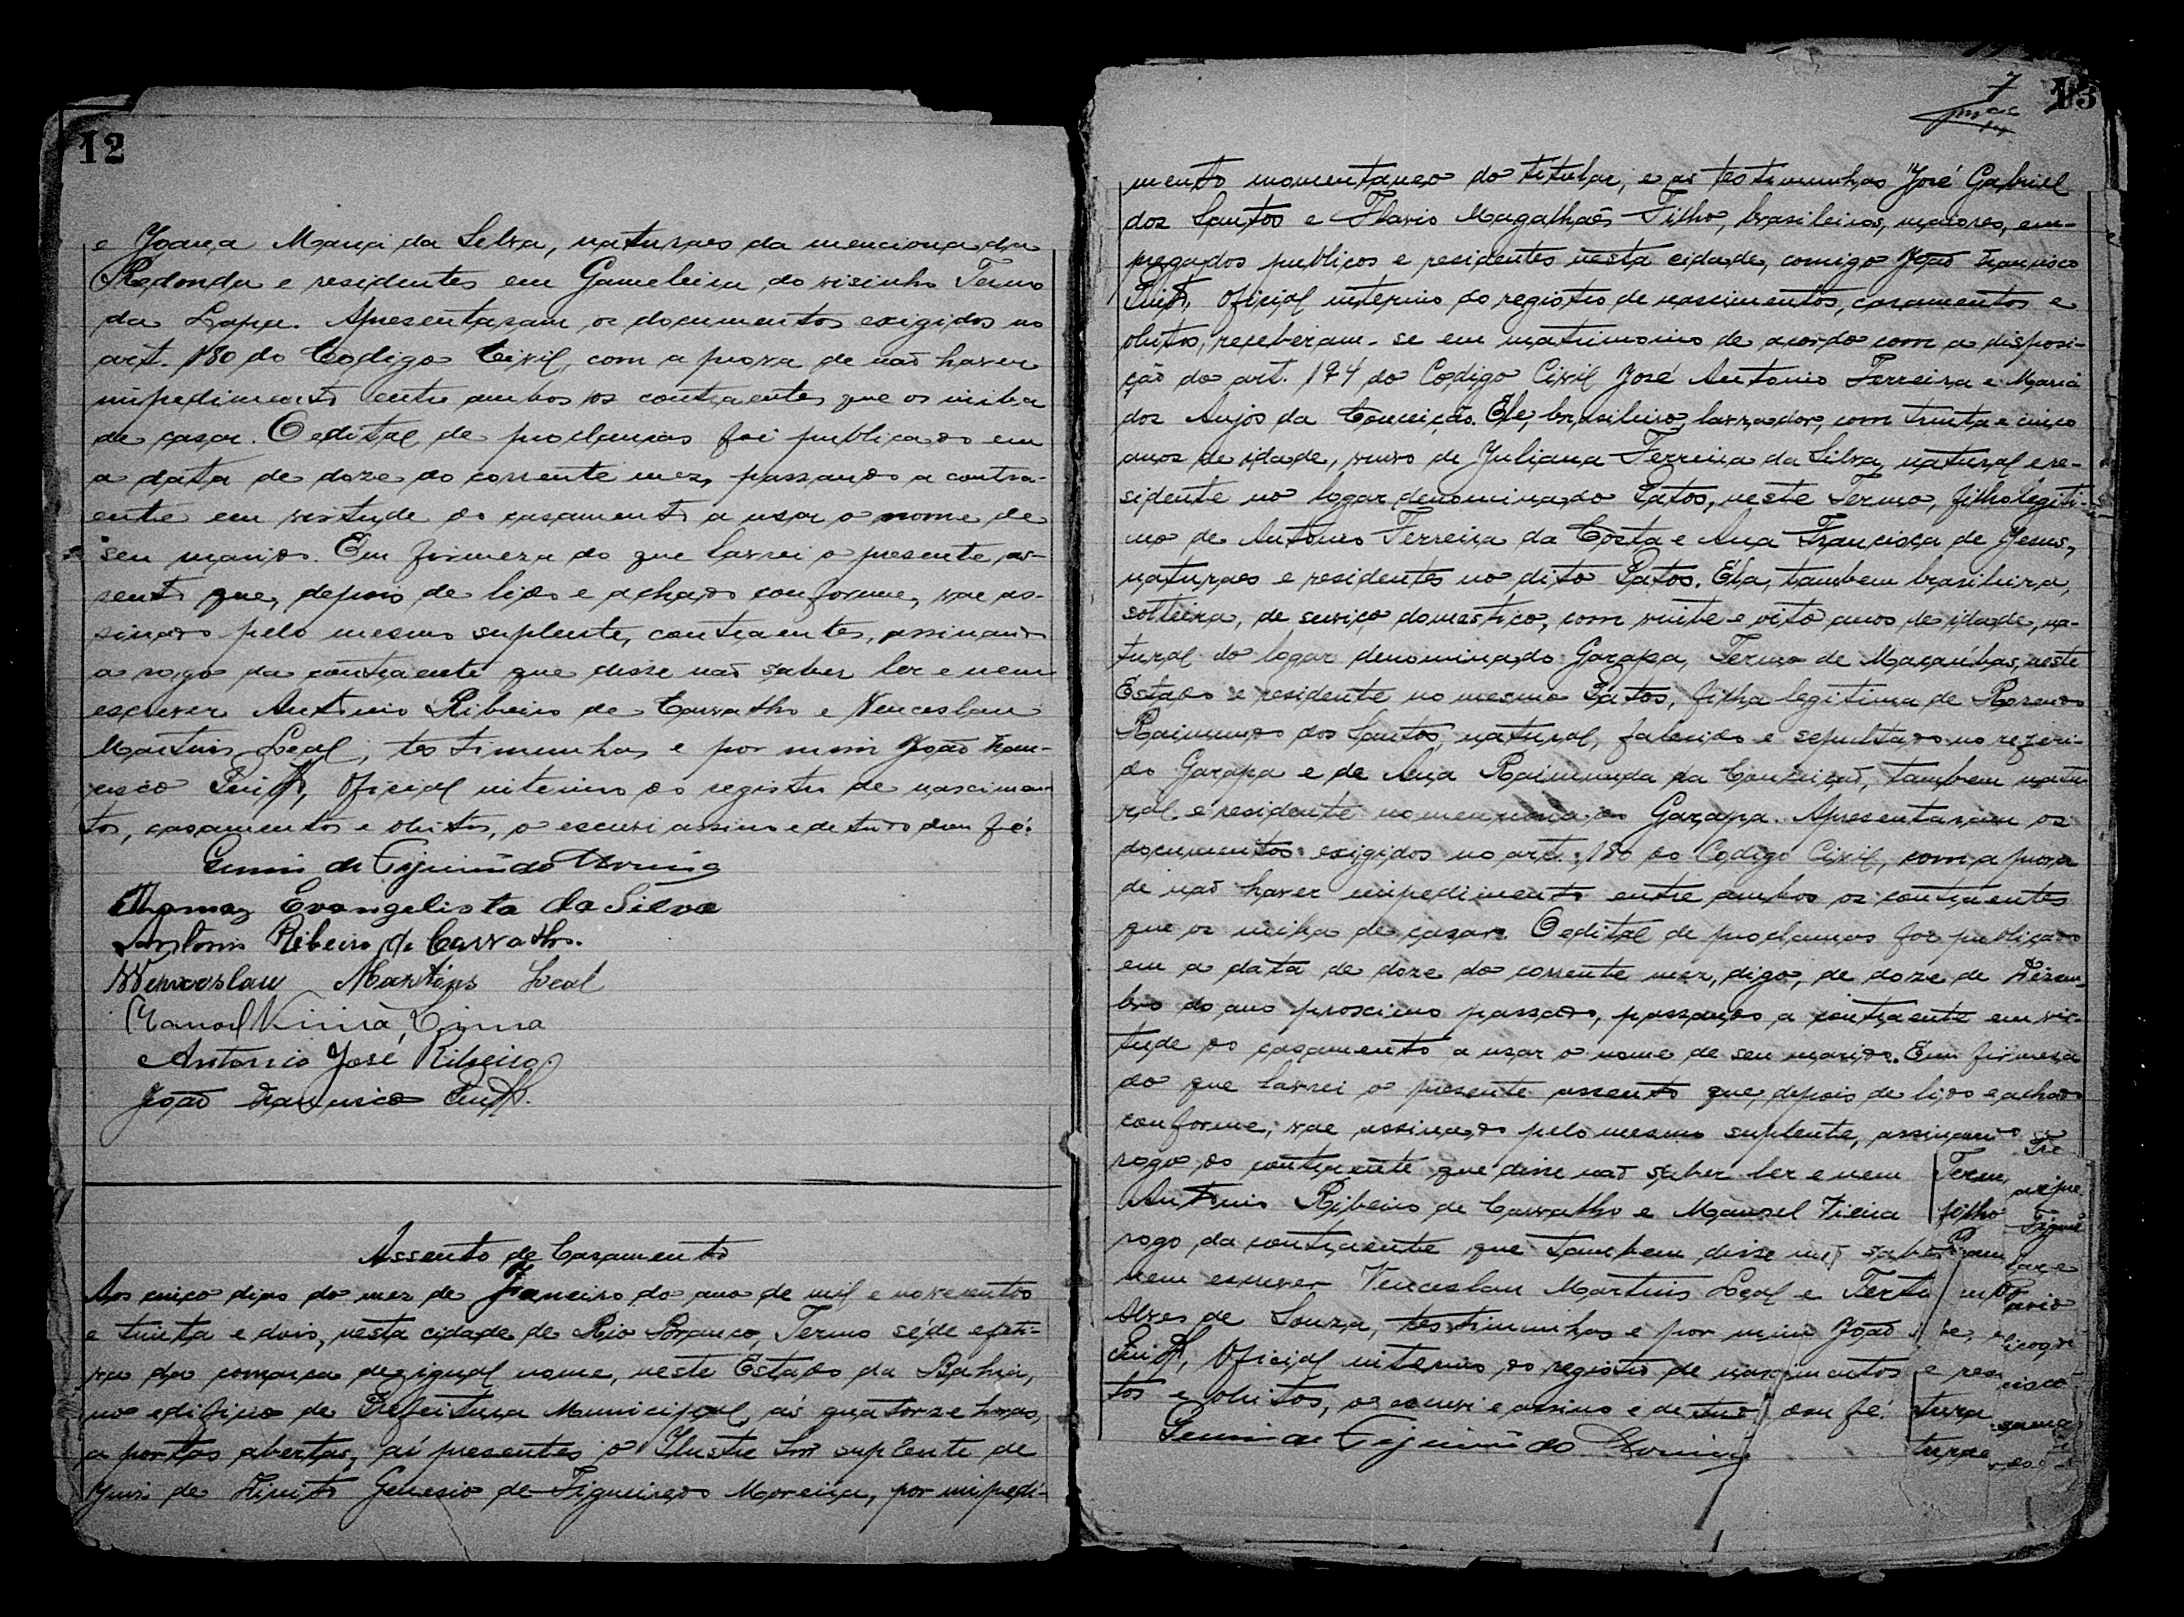 12
e Joana Maria da Silva, naturaes da mencionada
Redonda e residentes em Gameleira do visinho Termo
da Lapa. Apresentaram os documentos exigidos no
art. 180 do Codigo Civil, com a prova de não haver
impedimento entre ambos os contraentes que os iniba
de casar. O edital de proclamas foi publicado em
a data de doze do corrente mez, passando a contra-
ente em virtude do casamento a usar o nome de
seu marido. Em firmeza do que lavrei o presente as-
sento que, depois de lido e achado conforme, vae as-
sinado pelo mesmo suplente, contraentes, assinando
a rogo da contraente que disse não saber ler e nem
escrever Antonio Ribeiro de Carvalho e Venceslau
Martins Leal, testimunhas e por mim João Fran-
cisco, Oficial interino do registro de nascimen-
tos, casamentos e obitos, o escrevi assino e de tudo dou fé.
de Figueirêdo Moreira
Thomaz Evangelista da Silva
Antonio Ribeiro de Carvalho.
Wenceslau Martins Leal
Manoel Vieira
Antonio José Ribeiro
João Francisco
Assento de Casamento
Aos cinco dias do mez de Janeiro do ano de mil e novecentos
e trinta e dois, nesta cidade de Rio Branco, Termo séde efeti-
va da comarca de igual nome, neste Estado da Bahia,
no edificio de Prefeitura Municipal, ás quatorze horas,
a portas abertas, aí presentes o Ilustre Snr suplente de
Juiz de Direito Genesio de Figueiredo Moreira, por impedi-
7
13
mento momentaneo do titular, e as testimunhas José Gabriel
dos Santos e Flavio Magalhaês Filho, brasileiros, maiores, em-
pregados publicos e residentes nesta cidade, comigo João Francisco
Oficial interino do registro de nascimentos, casamentos e
obitos, receberam-se em matrimonio de acordo com a disposi-
ção do art. 194 do Codigo Civil José Antonio Ferreira e Maria
dos Anjos da Conceição. Ele, brasileiro, lavrador, com trinta e cinco
anos de idade, viuvo de Juliana Ferreira da Silva, natural e re-
sidente no logar denominado Patos, neste Termo, filho legiti-
mo de Antonio Ferreira da Costa e Ana Francisca de Jesus,
naturaes e residentes no dito Patos. Ela, tambem brasileira,
solteira, de serviço domestico, com vinte e oito anos de idade, na-
tural do logar denominado Garapa, Termo de Macaúbas, neste
Estado e residente no mesmo Patos, filha legitima de Rosendo
Raimundo dos Santos, natural, falecido e sepultado no referi-
do Garapa e de Ana Raimunda da Conceição, tambem natu
ral e residente no mencionado Garapa. Apresentaram os
documentos exigidos no art. 180 do Codigo Civil, com a prova
de não haver impedimento entre ambos os contraentes
que os iniba de casar. O edital de proclamas foi publicado
em a data de doze do corrente mez, digo, de doze de Dezem-
bro do ano proscimo passado, passando a contraente em vir-
tude do casamento a usar o nome de seu marido. Em firmeza
do que lavrei o presente assento que, depois de lido e achado
conforme, vae assinado pelo mesmo suplente, assinando
rogo do contraente que disse não saber ler e nem
Antonio Ribeiro de Carvalho e Manoel Vieira
rogo da contraente que tambem disse não saber
nem escrever Venceslau Martins Leal e
Alves de Souza, testimunhas e por mim João
Oficial interino do registro de nascimentos
tos e obitos, o escrevi e assino e de tudo dou fé.
de Figueirêdo Moreira